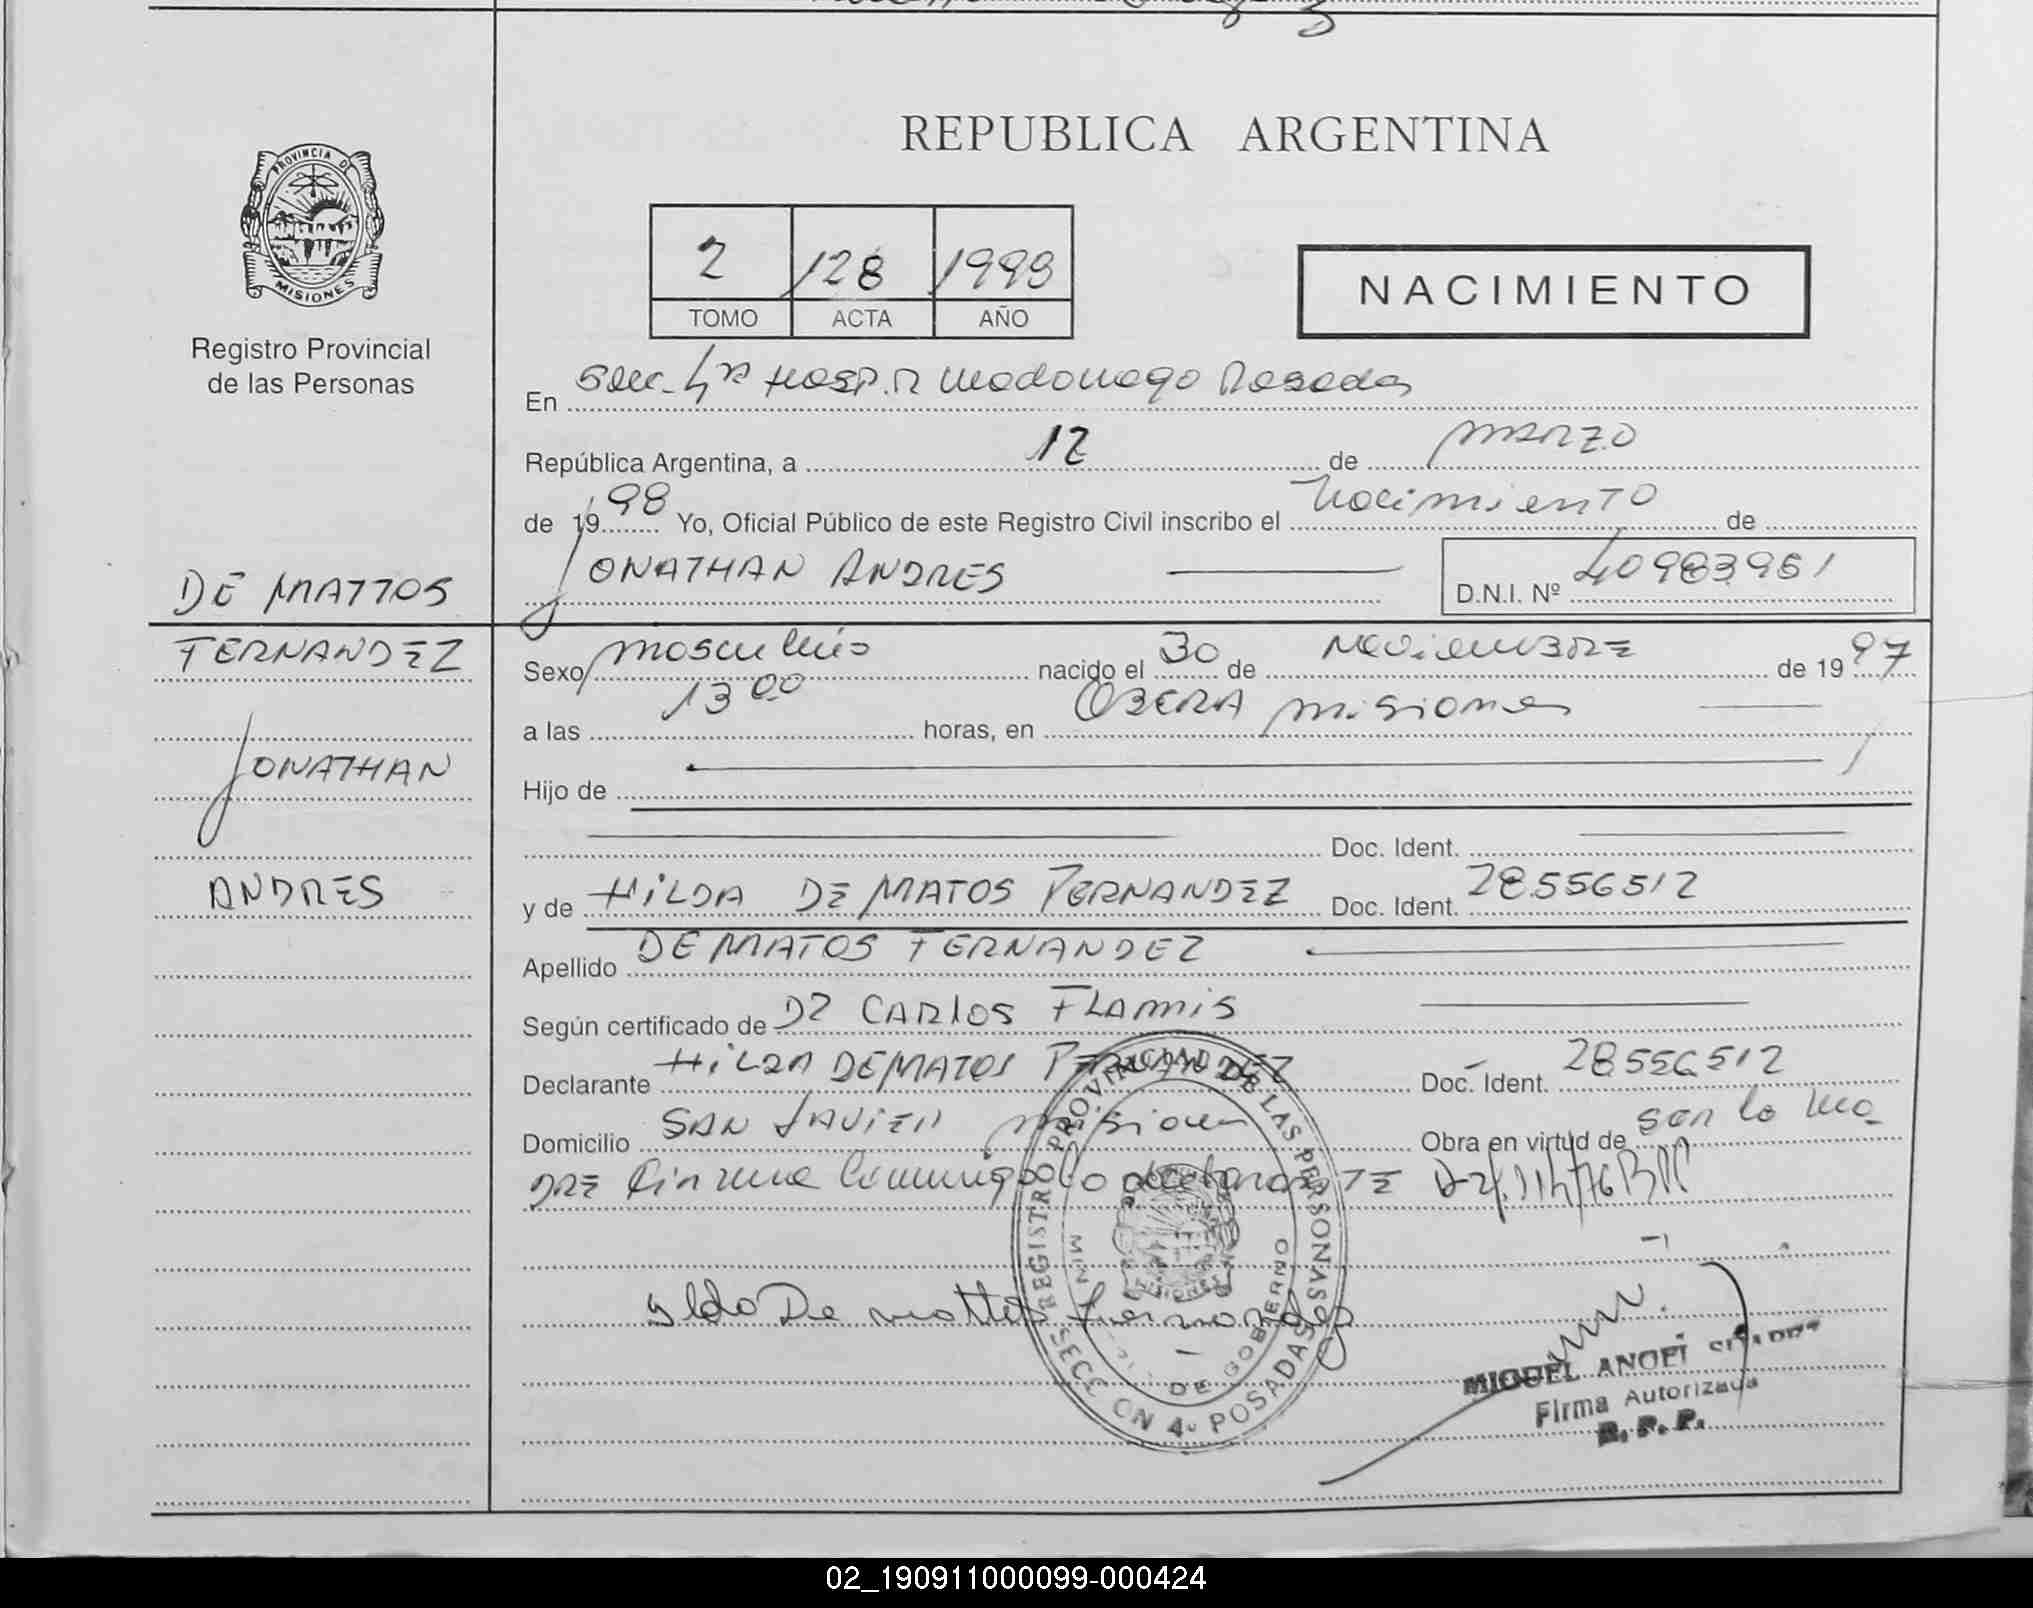 REPUBLICA ARGENTINA
PROVINCIA DE
MISIONES
Registro Provincial
de las Personas
2 128 1998
TOMO ACTA AÑO
NACIMIENTO
En Secc. 4ta Hosp. R Madariaga Posadas
República Argentina, a 12 de MARZO
de 1998 Yo, Oficial Público de este Registro Civil inscribo el Nacimiento de
JONATHAN ANDRES D.N.I. Nº 40983961
DE MATTOS
FERNANDEZ
JONATHAN
ANDRES
Sexo masculino nacido el 30 de NOVIEMBRE de 1997
a las 13 00 horas, en OBERA misiones
Hijo de
Doc. Ident.
y de HILDA DE MATOS FERNANDEZ Doc. Ident. 28556512
Apellido DE MATOS FERNANDEZ
Según certificado de DR CARLOS FLAMIS
Declarante HILDA DE MATOS FERNANDEZ Doc. Ident. 28556512
Domicilio SAN JAVIER misiones Obra en virtud de ser la ma
DRE conmigo la declarante
Ylda De mattos fernandez
REGISTRO PROVINCIAL DE LAS PERSONAS
DE GOBIERNO
SECCION 4a POSADAS
MIGUEL ANGEL
Firma Autorizada
R. P. P.
02_190911000099-000424